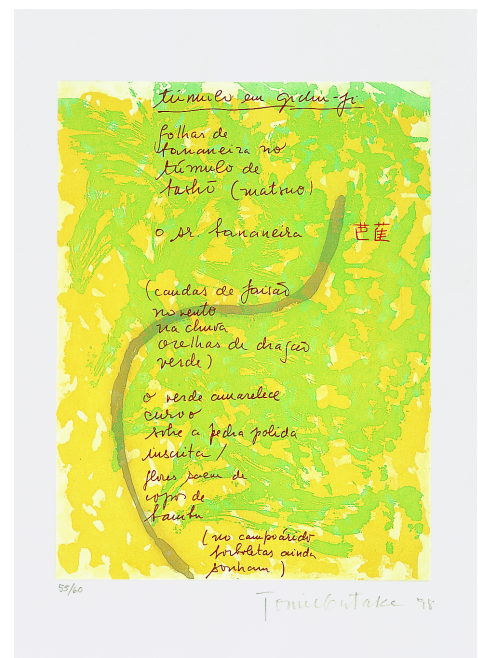 túmulo em gidiu-ji
folhas de
bananeira no
túmulo de
bashō (matsuo)
o sr. bananeira
芭蕉
(caudas de faisão
no vento
na chuva
orelhas de dragão
verde)
o verde amarelece
curvo
sobre a pedra polida
inscrita /
flores saem de
copos de
bambu
(no campoárido
borboletas ainda
sonham)
55/60
Tomie Ohtake 95